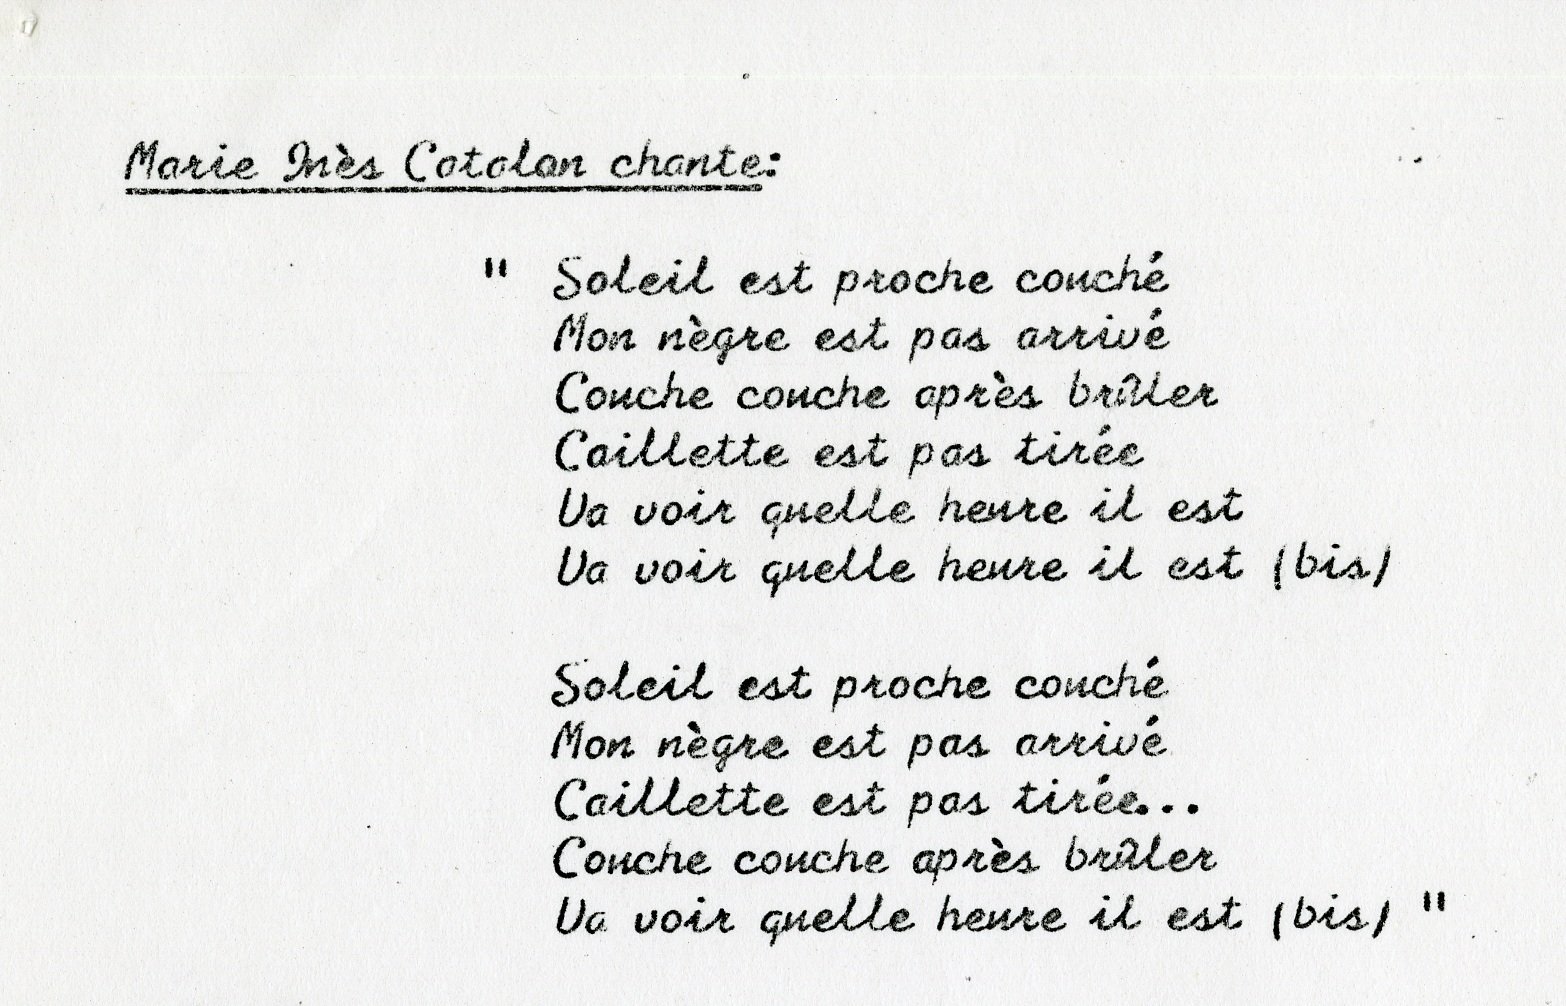 Marie Inès Catalan chante:
" Soleil est proche couché
Mon nègre est pas arrivé
Couche couche après brûler
Caillette est pas tirée
Va voir quelle heure il est
Va voir quelle heure il est (bis)
Soleil est proche couché
Mon nègre est pas arrivé
Caillette est pas tirée...
Couche couche après brûler
Va voir quelle heure il est (bis) "